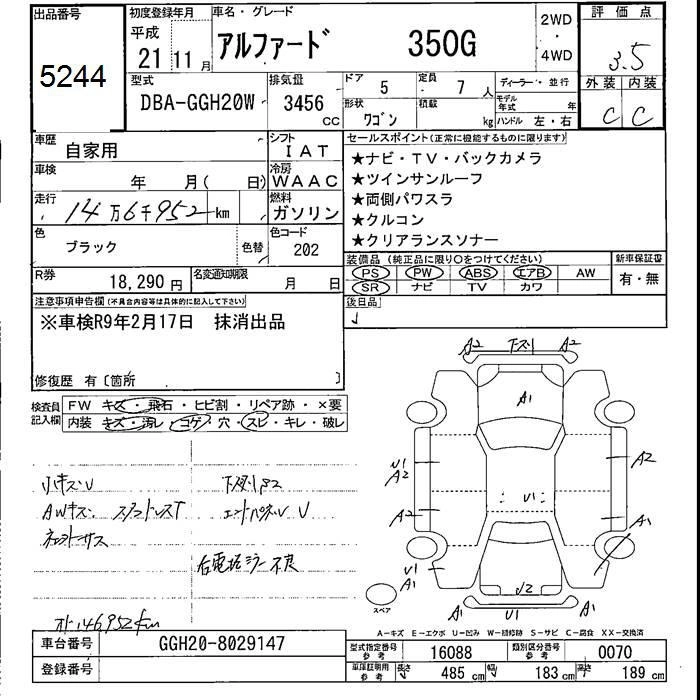 出品番号
5244
初度登録年月
平成
21 11 月
車名・グレード
アルファード 350G
2WD
・
4WD
評価点
3.5
外装 内装
C C
型式
DBA-GGH20W
排気量
3456 CC
ドア 5
定員 7 人
形状 ワゴン
積載 kg
ディーラー・並行
モデル年式 年
ハンドル 左・右
車歴 自家用
シフト IAT
車検 年 月( 日)
冷房 WAAC
走行 14万6千952 km
燃料 ガソリン
色 ブラック 色替
色コード 202
セールスポイント(正常に機能するものに限ります)
★ナビ・TV・バックカメラ
★ツインサンルーフ
★両側パワスラ
★クルコン
★クリアランスソナー
装備品(純正品に限り○をつけてください)
PS PW ABS エアB AW
SR ナビ TV カワ
新車保証書
有・無
R券 18,290 円
名変通知期限 月 日
後日品
注意事項申告欄(不具合内容等は具体的に記入して下さい)
※車検R9年2月17日 抹消出品
修復歴 有〔箇所 〕
検査員記入欄
FW キズ・飛石・ヒビ割・リペア跡・×要
内装 キズ・汚レ・コゲ・穴・スレ・キレ・破レ
小キズU
AWキズ・スタッドレスT
下廻りS2
右電格ミラー不良
オドメ146952km
A2 下スリ A2
A1
U1
A2
A2
A2
A1
U1
U1
A1
J2
A1 U1 A1
スペア
A-キズ E-エクボ U-凹み W-補修跡 S-サビ C-腐食 XX-交換済
車台番号 GGH20-8029147
登録番号
型式指定番号 参考 16088
類別区分番号 参考 0070
車庫証明用 参考 長さ 485 cm 幅 183 cm 高さ 189 cm